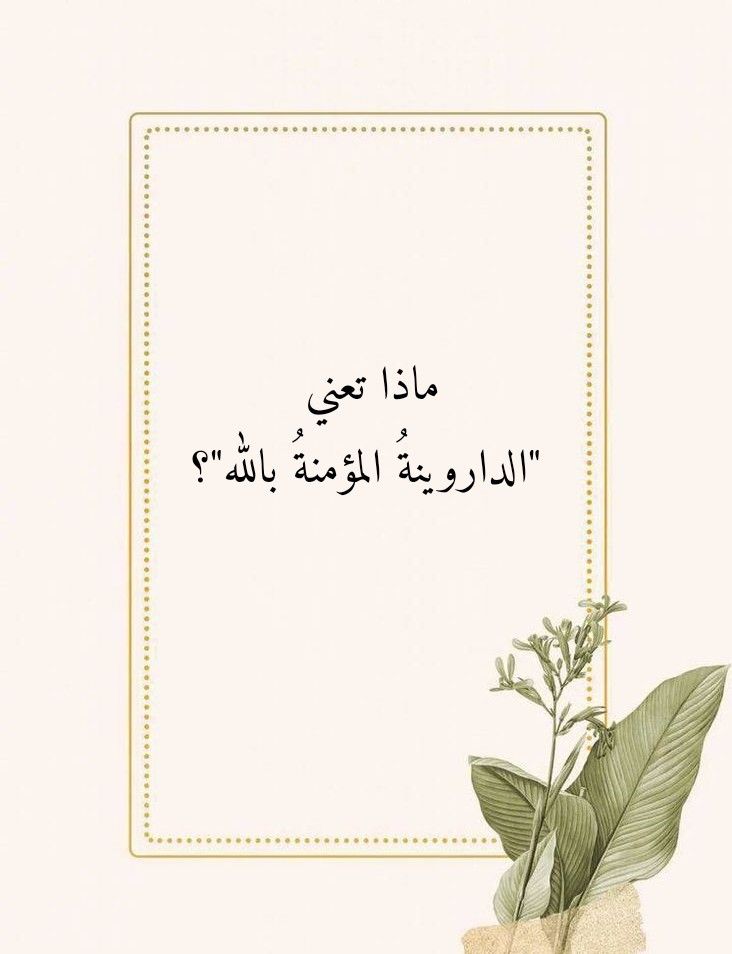 ماذا تعني
"الداروينةُ المؤمنةُ بالله"؟